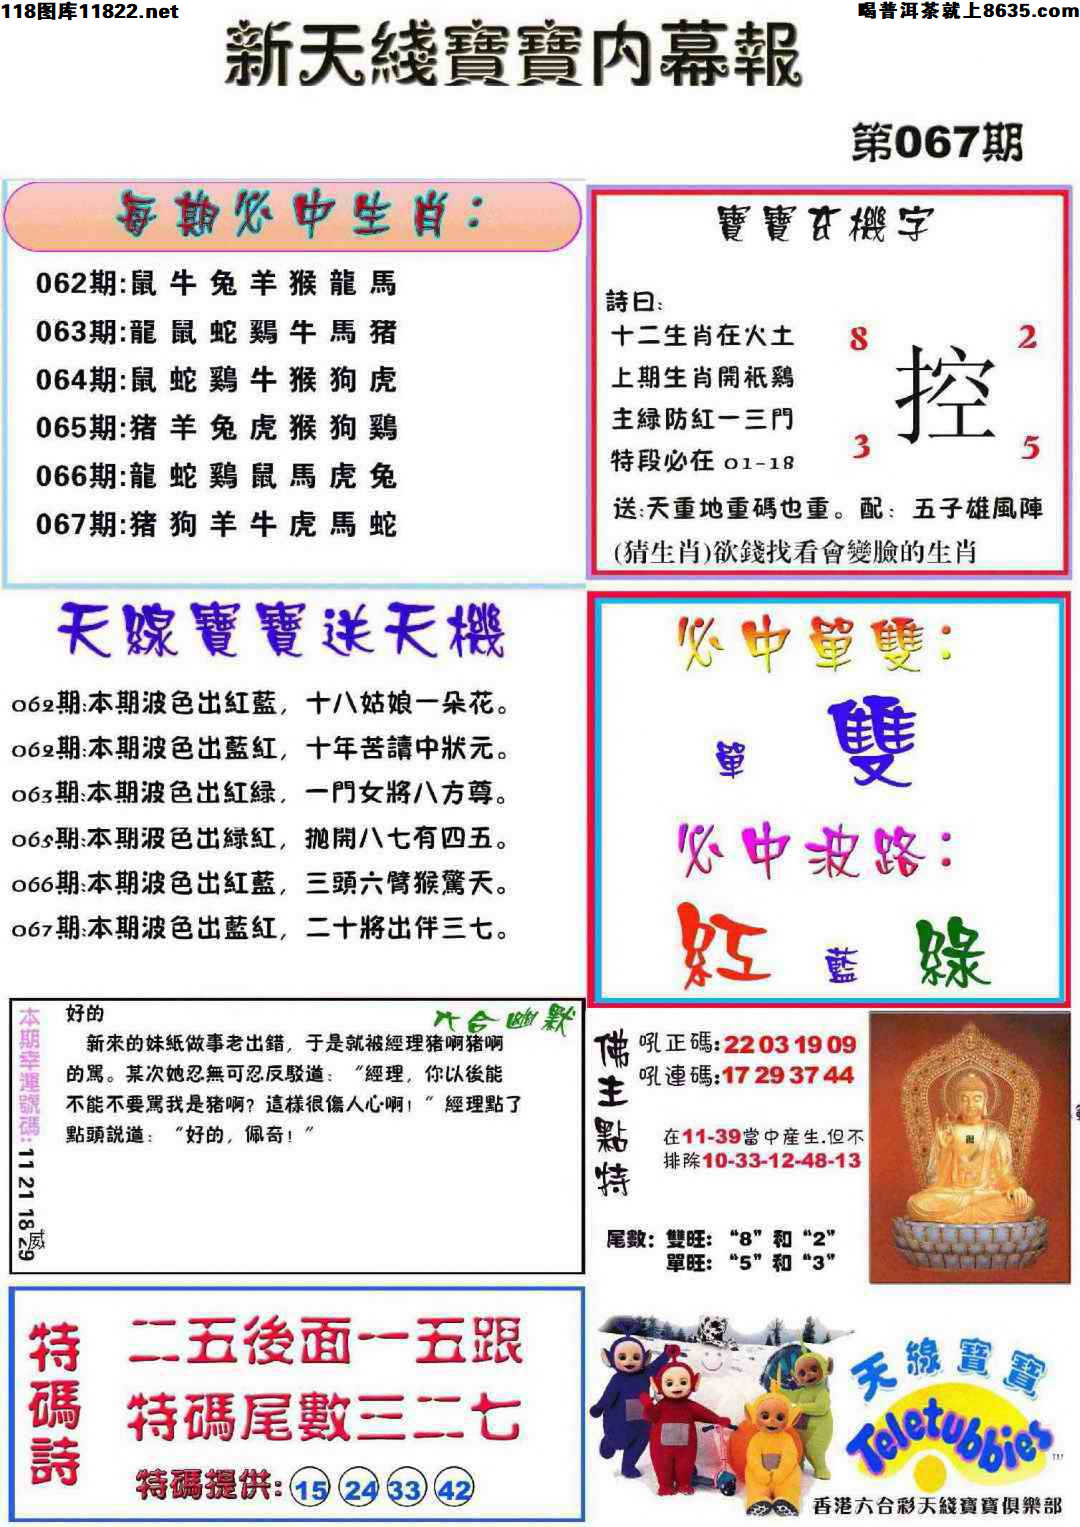 118图库11822.net
喝普洱茶就上8635.com
新天綫寶寶内幕報
第067期
每期必中生肖：
062期:鼠牛兔羊猴龍馬
063期:龍鼠蛇鷄牛馬猪
064期:鼠蛇鷄牛猴狗虎
065期:猪羊兔虎猴狗鷄
066期:龍蛇鷄鼠馬虎兔
067期:猪狗羊牛虎馬蛇
寶寶玄機字
詩曰:
十二生肖在火土
上期生肖開衹鷄
主緑防紅一三門
特段必在 01-18
8
2
控
3
5
送:天重地重碼也重。配：五子雄風陣
(猜生肖)欲錢找看會變臉的生肖
天線寶寶送天機
062期:本期波色出紅藍，十八姑娘一朵花。
062期:本期波色出藍紅，十年苦讀中狀元。
063期:本期波色出紅緑，一門女將八方尊。
065期:本期波色出緑紅，抛開八七有四五。
066期:本期波色出紅藍，三頭六臂猴驚天。
067期:本期波色出藍紅，二十將出伴三七。
必中單雙：
單
雙
必中波路：
紅
藍
綠
本期幸運號碼: 11 21 18 29
威
六合幽默
好的
新來的妹紙做事老出錯，于是就被經理猪啊猪啊
的罵。某次她忍無可忍反駁道：“經理，你以後能
不能不要罵我是猪啊？這樣很傷人心啊！”經理點了
點頭説道：“好的，佩奇！”
佛主點特
吼正碼:22 03 19 09
吼連碼:17 29 37 44
在11-39當中産生.但不
排除10-33-12-48-13
尾數：雙旺：“8”和“2”
單旺：“5”和“3”
特碼詩
二五後面一五跟
特碼尾數三二七
特碼提供: 15 24 33 42
天線寶寶
Teletubbies
TM
香港六合彩天綫寶寶俱樂部